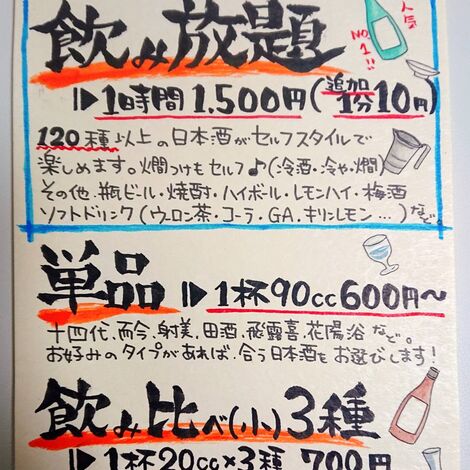 人気
NO.1!!
飲み放題
1時間 1,500円(追加1分10円)
120種以上の日本酒がセルフスタイルで
楽しめます。燗つけもセルフ♪(冷酒・冷や・燗)
その他.瓶ビール・焼酎・ハイボール・レモンハイ・梅酒
ソフトドリンク(ウーロン茶・コーラ・G.A.キリンレモン…)など。
単品
1杯90cc600円〜
十四代.而今.射美.田酒.飛露喜.花陽浴など。
お好みのタイプがあれば、合う日本酒もお選びします!
飲み比べ(小)3種
1杯20cc×3種 700円